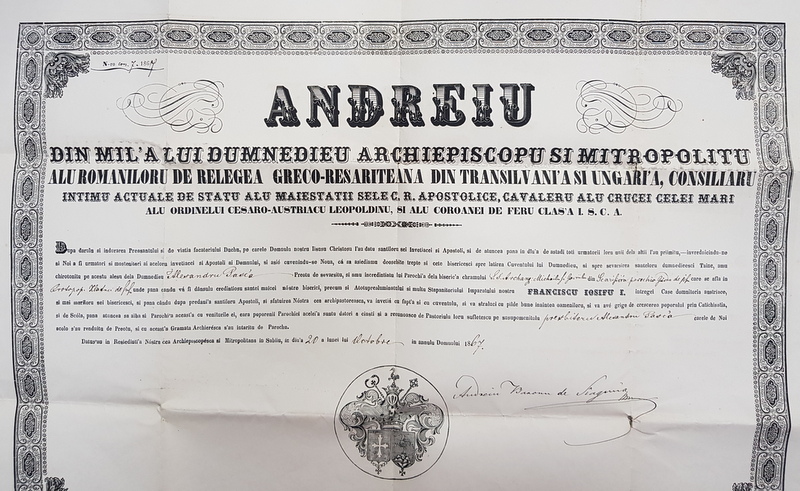 ANDREIU
DIN MIL'A LUI DUMNEDIEU ARCHIEPISCOPU SI MITROPOLITU
ALU ROMANILORU DE RELEGEA GRECO-RESARITEANA DIN TRANSILVANI'A SI UNGARI'A, CONSILIARU
INTIMU ACTUALE DE STATU ALU MAIESTATII SELE C. R. APOSTOLICE, CAVALERU ALU CRUCEI CELEI MARI
ALU ORDINELUI CESARO-AUSTRIACU LEOPOLDINU, SI ALU COROANEI DE FERU CLAS'A I. S. C. A.
Dupa darulu si indurarea Preasantului si de viatia facatoriului Duchu, pe carele Domnulu nostru Iisusu Christosu l'au datu santiloru sei Invetiacei si Apostoli, si de atuncea pana in diu'a de astadi toti urmatorii loru unii dela altii l'au primitu,—invrednicindu-ne
si Noi a fi urmatori si mostenitori ai aceloru invetiacei si Apostoli ai Domnului, si asiá cuvenindu-se Noua, cá sa asiediamu deosebite trepte si cete bisericesci spre latirea Cuventului lui Dumnedieu, si spre sevarsirea santeloru dumnedieesci Taine, amu
chirotonitu pe acestu alesu dela Dumnedieu Alexandru Pasca Preotu de novarsitu, si amu incredintatu lui Parochi'a dela biseric'a chramului
Protopop. unde pana candu vá fi dánsulu credinciosu santei maicei nóstre biserici, precum si Atotuprealuminatului si multu Stepanitoriului Imparatului nostru FRANCISCU IOSIFU I. intregei Case dumnitoria austriace,
si mai mariloru sei bisericesci, si pana candu dupa predani'a santiloru Apostoli, si sfatuirea Nóstra cea archipastorésca, va invetiá cu fapt'a si cu cuventulu, si va straluci cu pilde bune inaintea oameniloru, si va avé grige de crescerea poporului prin Catichisatia,
si de Scóla, pana atuncea sa aiba si Parochi'a aceast'a cu veniturile ei, eara poporenii Parochiei acelei'a sunt datori a cinsti si a recunósce de Pastoriulu loru sufletescu pe susupomenitulu presbiteru Alexandru Pasca carele de Noi
acolo s'au renduitu de Preotu, si cu aceast'a Gramata Archierésca s'au intaritu de Parochu.
Datu-s'au in Resiedinti'a Nóstra cea Archiepiscopésca si Mitropolitana in Sabiiu, in diu'a 20 a lunei lui Octobre in anulu Domnului 1867.
Andreiu Baronu de Siaguna